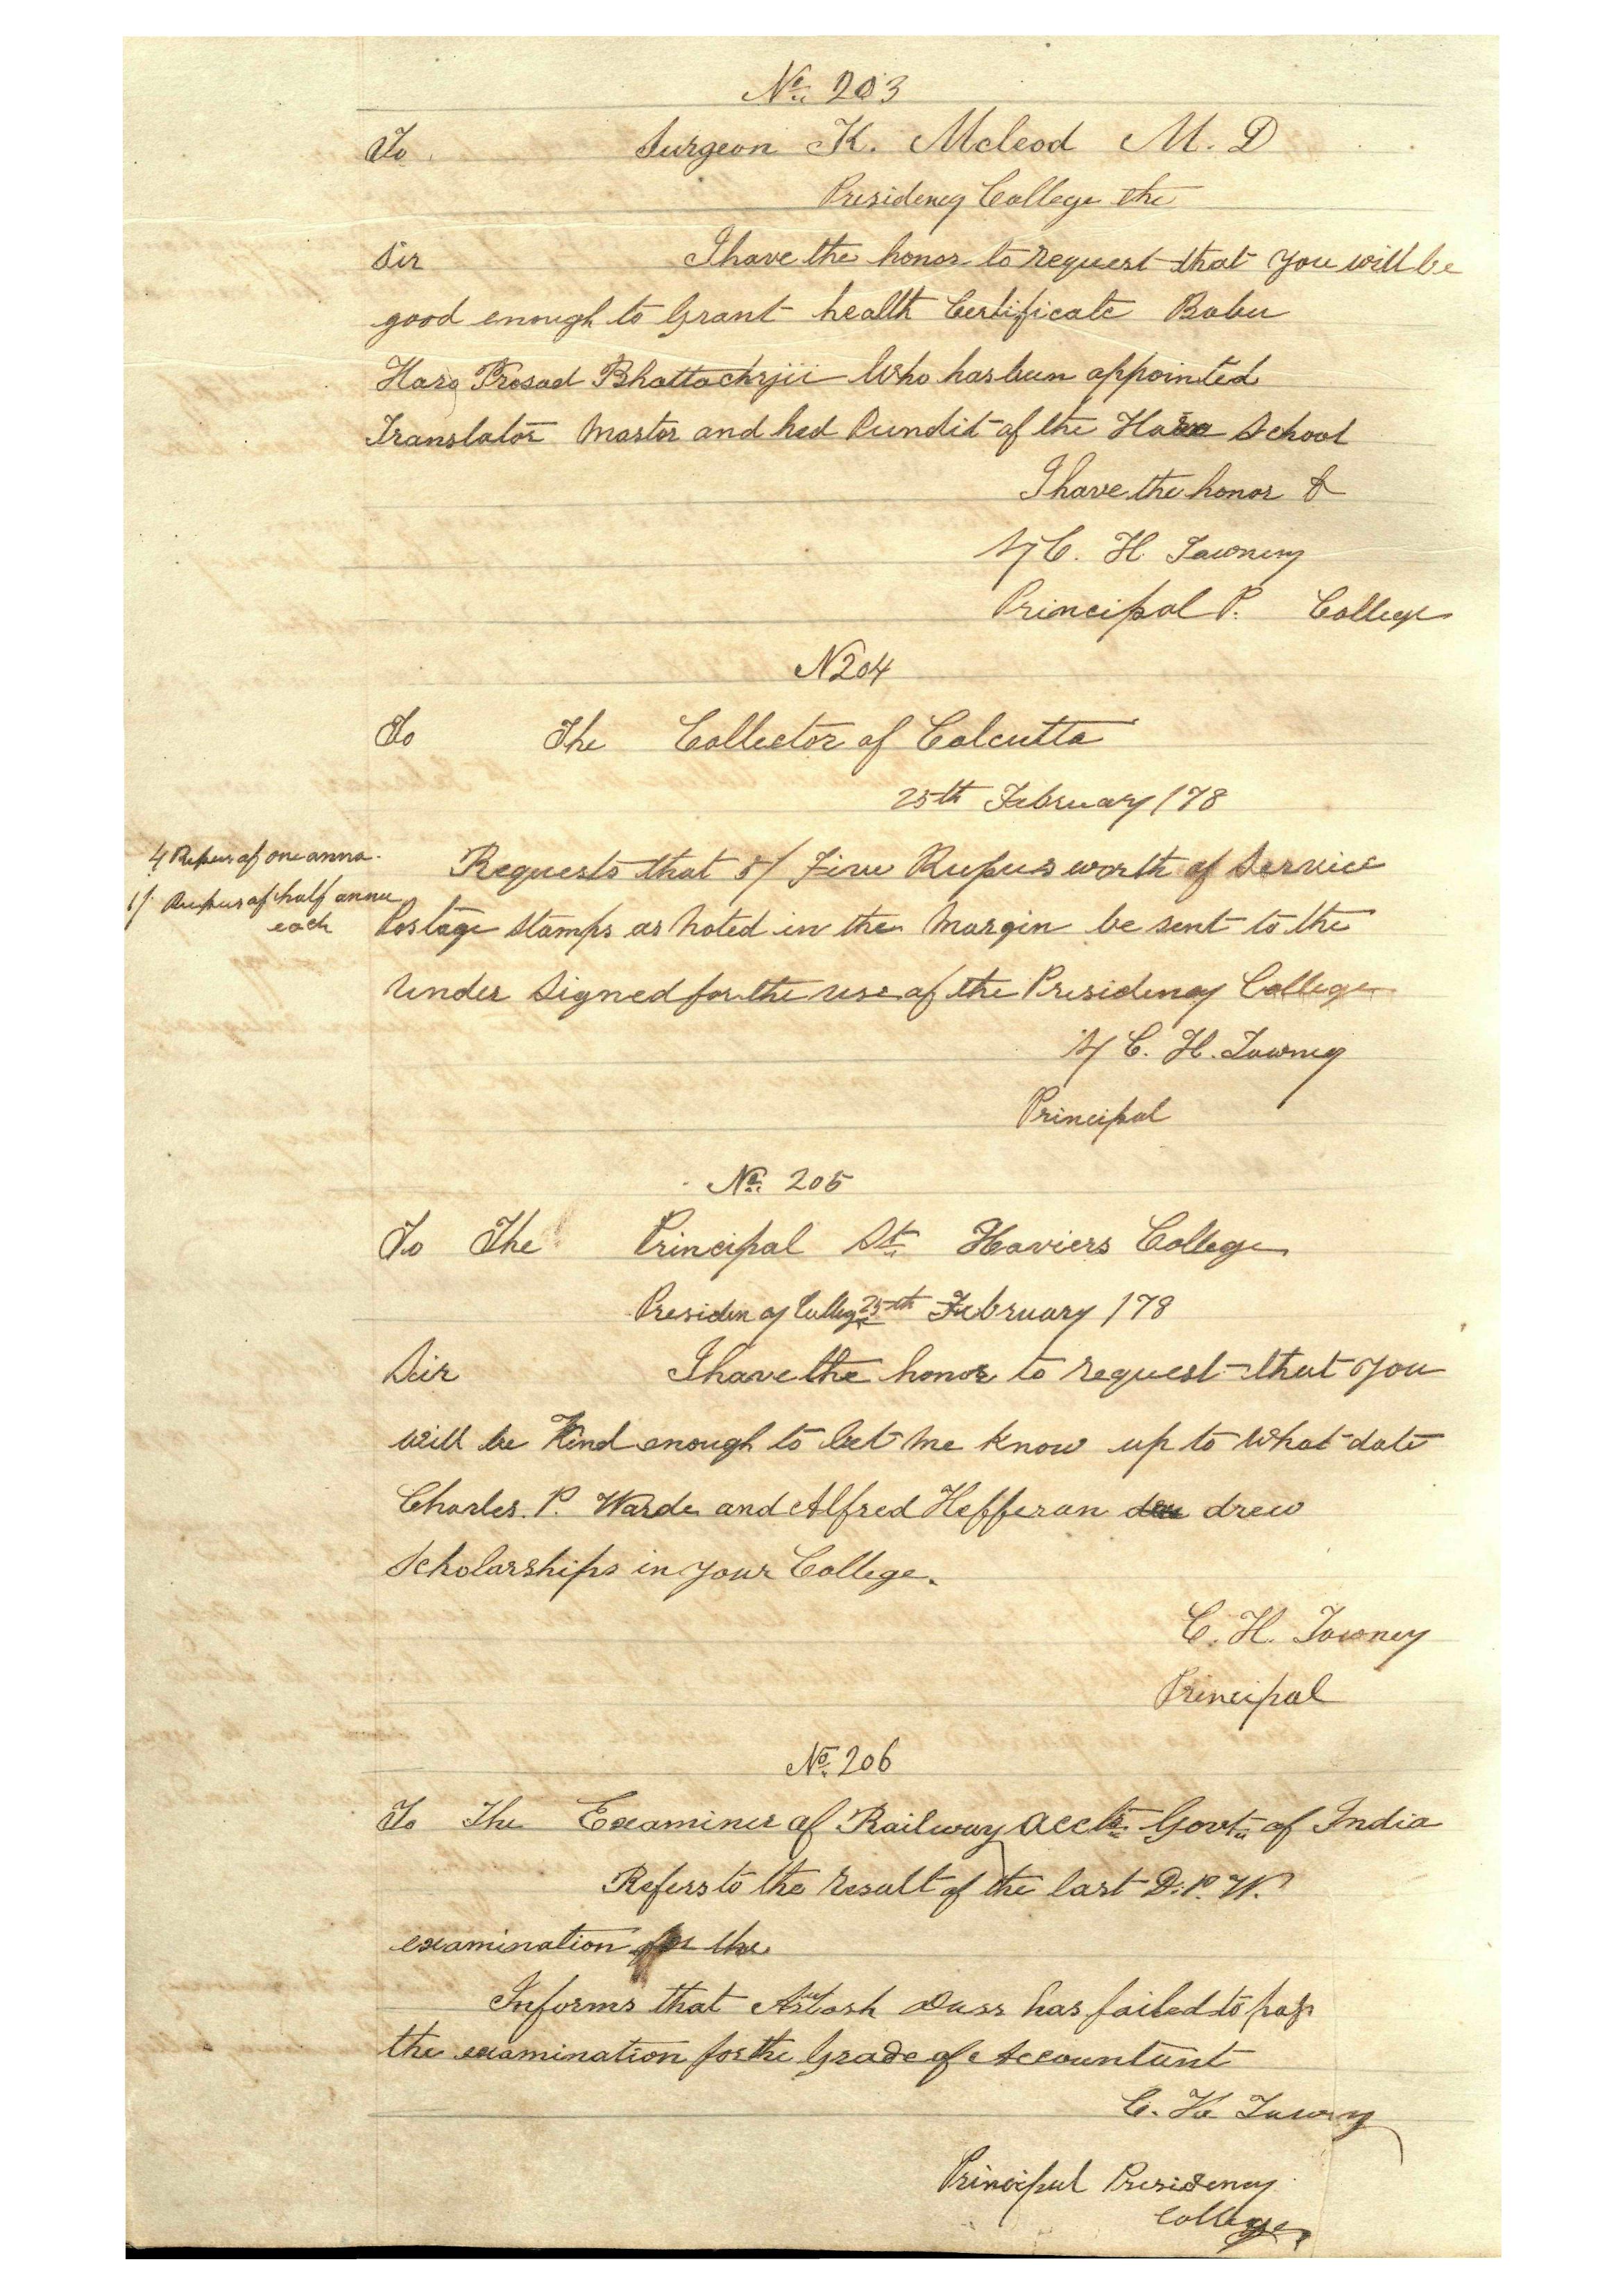 No. 203
To Surgeon K. Mcleod M. D
Presidency College the
Sir I have the honor to request that you will be
good enough to Grant health Certificate Babu
Hara Prosad Bhattachrjii Who has been appointed
Translator Master and hed Pundit of the Hare School
I have the honor &
S/ C. H. Tawney
Principal P. College
N 204
To The Collector of Calcutta
25th February /78
4 Rupees of one anna.
1/ Rupees of half anna
each
Requests that 5/ Five Rupees worth of Service
Postage Stamps as Noted in the Margin be sent to the
Under Signed for the use of the Presidency College
S/ C. H. Tawney
Principal
No. 205
To The Principal St. Haviers College
Presidency College 25th February /78
Sir I have the honor to request that you
will be Kind enough to let me know up to What date
Charles. P. Warde and Alfred Hefferan drew
Scholarships in your College.
C. H. Tawney
Principal
No. 206
To The Examiner of Railway Accts. Govt. of India
Refers to the result of the last D. P. W.
examination for the
Informs that Asutosh Dass has failed to pass
the examination for the Grade of Accountant
C. H. Tawney
Principal Presidency
College